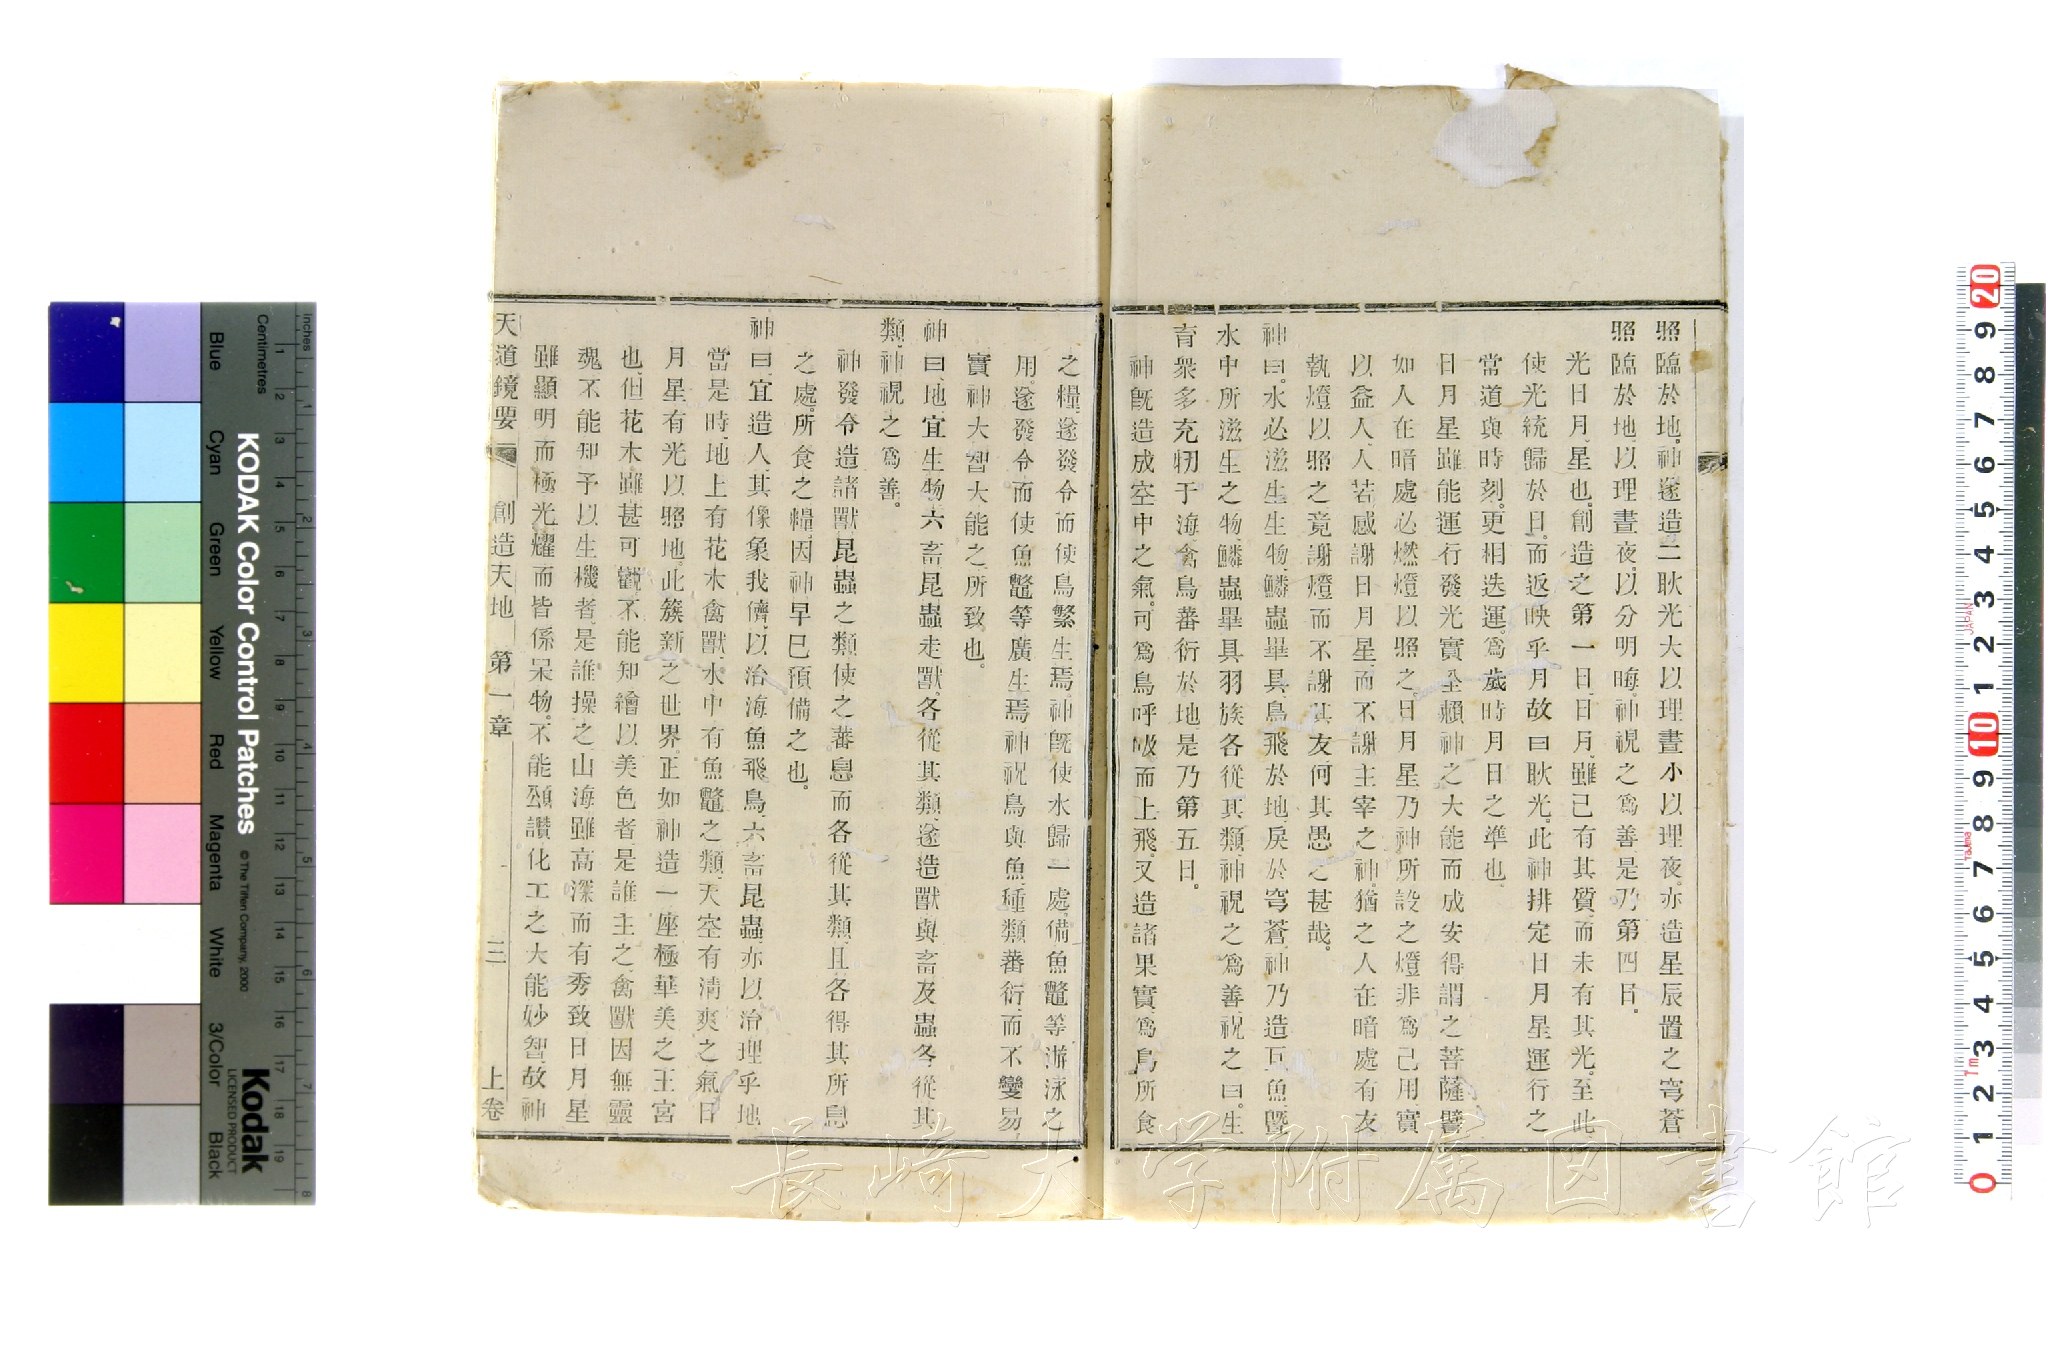 照臨於地、神遂造二耿光大以理晝小以理夜、亦造星辰置之穹蒼
照臨於地、以理晝夜、以分明晦、神視之爲善是乃第四日。
光日月、星也。創造之第一日、日月、雖已有其質、而未有其光。至此、
使光統歸於日、而返映乎月故曰耿光。此神排定日月星運行之
常道與時刻。更相迭運、爲歲時月日之準也
日月星雖能運行發光實全賴神之大能而成安得謂之菩薩譬
如人在暗處必燃燈以照之、日月星乃神所設之燈非爲己用、實
以益人、人若感謝日月星而不謝主宰之神。猶之人在暗處有友
執燈以照之竟謝燈而不謝其友何其愚之甚哉。
神曰。水必滋生生物、鱗蟲畢具、鳥飛於地、戾於穹蒼、神乃造巨魚曁
水中所滋生之物、鱗蟲畢具羽族各從其類神視之爲善、祝之曰。生
育衆多充牣于海禽鳥蕃衍於地是乃第五日。
神旣造成空中之氣。可爲鳥呼吸而上飛。又造諸果實、爲鳥所食
之糧、遂發令而使鳥繁生焉、神旣使水歸一處、備魚鼈等游泳之
用。遂發令而使魚鼈等廣生焉神祝鳥與魚、種類蕃衍、而不變易、
實神大智大能之所致也。
神曰、地宜生物、六畜昆蟲走獸、各從其類、遂造獸與畜及蟲各從其
類、神視之爲善。
神發令造諸獸昆蟲之類使之蕃息而各從其類、且各得其所息
之處。所食之糧、因神早已預備之也。
神曰、宜造人其像象我儕、以治海魚飛鳥、六畜昆蟲、亦以治理乎地
當是時、地上有花木禽獸、水中有魚鼈之類、天空有淸爽之氣、日
月星有光以照地。此簇新之世界、正如神造一座極華美之王宮
也、但花木雖甚可觀、不能知繪以美色者、是誰主之、禽獸因無靈
魂不能知予以生機者、是誰操之、山海雖高深而有秀致日月星
雖顯明而極光耀而皆係呆物、不能頌讚化工之大能妙智、故神
天道鏡要 創造天地 第一章 三 上卷
KODAK Color Control Patches
© The Tiffen Company, 2000
Kodak
LICENSED PRODUCT
Inches
Centimetres
Blue Cyan Green Yellow Red Magenta White 3/Color Black
長崎大学附属図書館